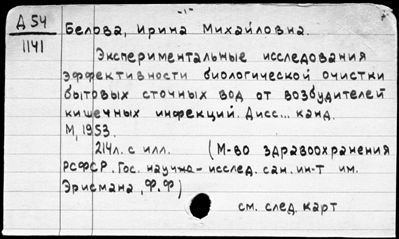 -1-
Д 54
1141
Белова, Ирина Михайловна.
Экспериментальные исследования
эффективности биологической очистки
бытовых сточных вод от возбудителей
кишечных инфекций. Дисс... канд.
М, 1953.
214л. с илл. (М-во здравоохранения
РСФСР. Гос. научно-исслед. сан. ин-т им.
Эрисмана, Ф.Ф)
см. след. карт